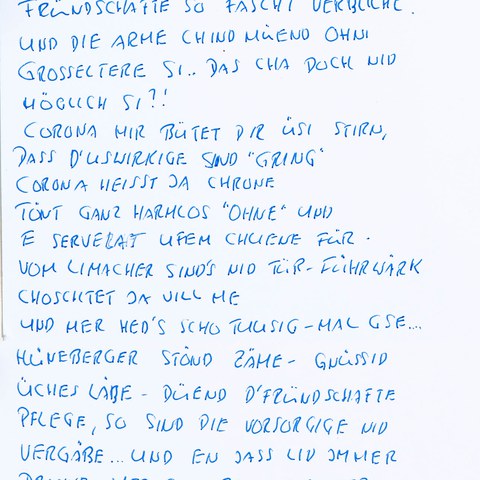 FRÜNDSCHAFTE SO FASCHT VERBLICHE.
UND DIE ARME CHIND MÜEND OHNI
GROSSELTERE SI.. DAS CHA DOCH NID
MÖGLICH SI?!
CORONA MIR BÜTET DIR ÜSI STIRN,
DASS D'USWIRKIGE SIND "GRING"
CORONA HEISST JA CHRONE
TÖNT GANZ HARMLOS "OHNE" UND
E SERVELAT UFEM CHLIENE FÜR.
VOM LIMACHER SIND'S NID TÜR-FÜHRWÄRK
CHOSCHTET JA VILL ME
UND MER HED'S SCHO TUUSIG-MAL GSE...
HÜNEBERGER STÖND ZÄME- GNÜSSID
ÜCHES LÄBE - DÜEND D'FRÜNDSCHAFTE
PFLEGE, SO SIND DIE VORSORGIGE NID
VERGÄBE...UND EN JASS LID IMMER